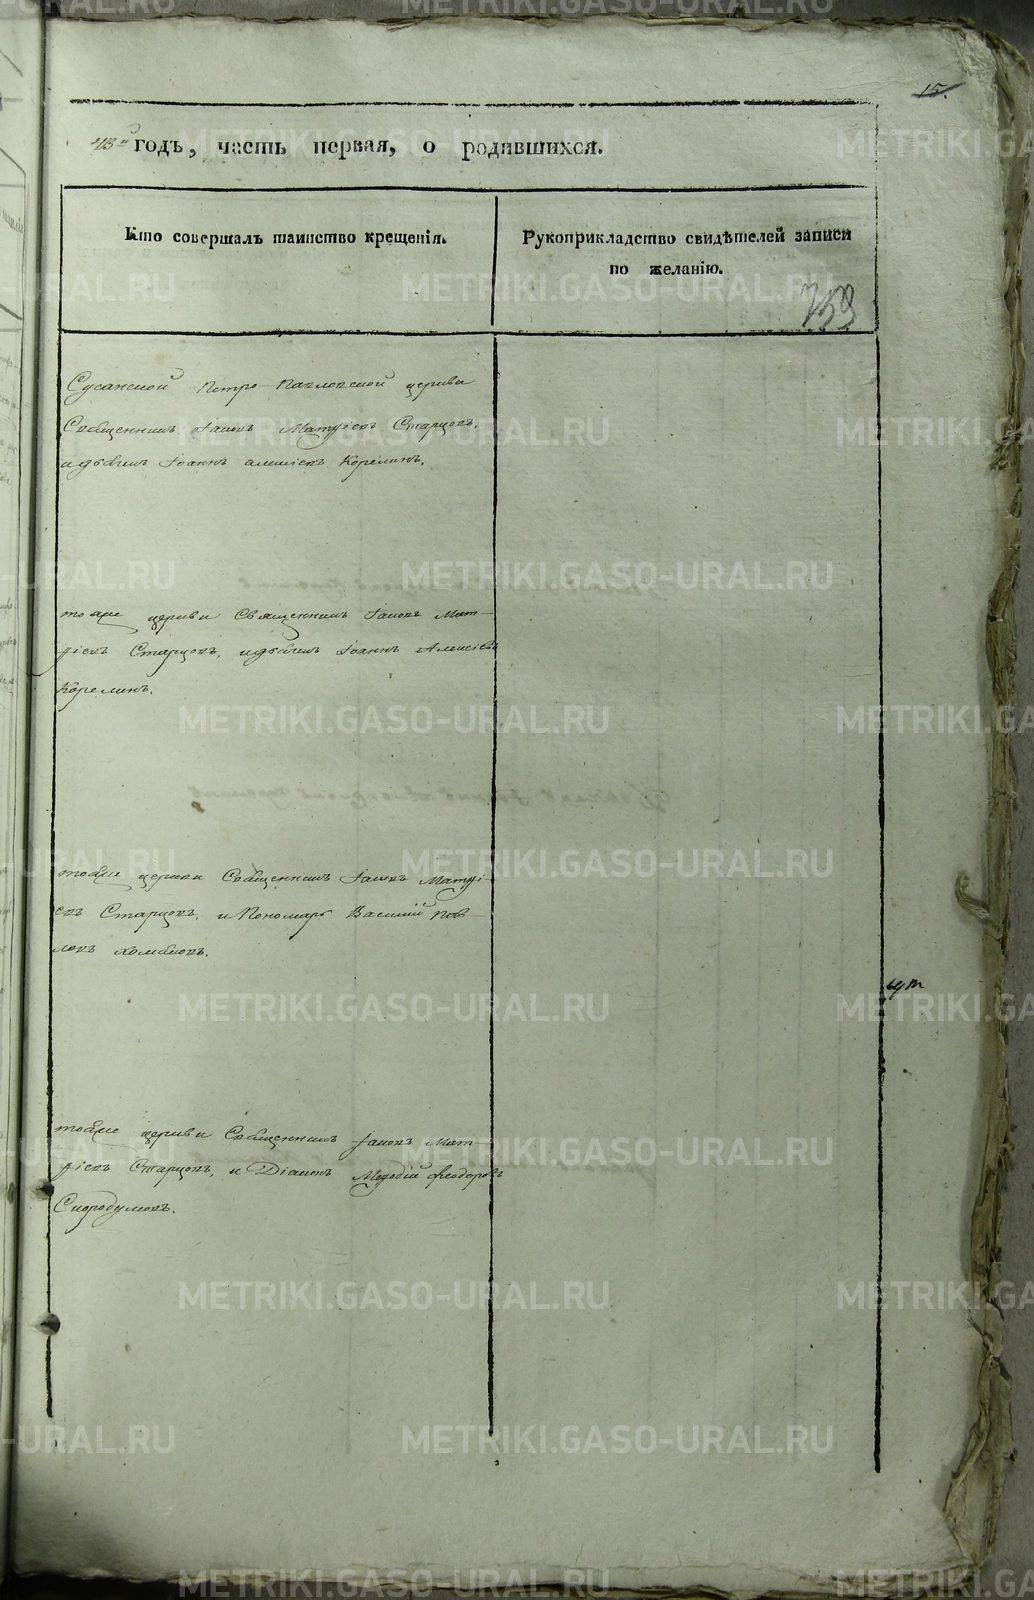 15.
43го годъ, часть первая, о родившихся.
Кто совершалъ таинство крещенія.
Рукоприкладство свидѣтелей записи
по желанію.
753
Сусанской Петро-Павловской церкви
Священникъ Іаковъ Матѳіевъ Старцовъ,
и дьячикъ Іоаннъ Алексіевъ Корелинъ.
тояже церкви Священникъ Іаковъ Мат-
ѳіевъ Старцовъ, и дьячикъ Іоаннъ Алексіевъ
Корелинъ.
тояже церкви Священникъ Іаковъ Матѳі-
евъ Старцовъ, и Пономарь Василій Пав-
ловъ
тояже церкви Священникъ Іаковъ Мат-
ѳіевъ Старцовъ, и Діаконъ Меѳодій Феодоровъ
Скородумовъ.
METRIKI.GASO-URAL.RU